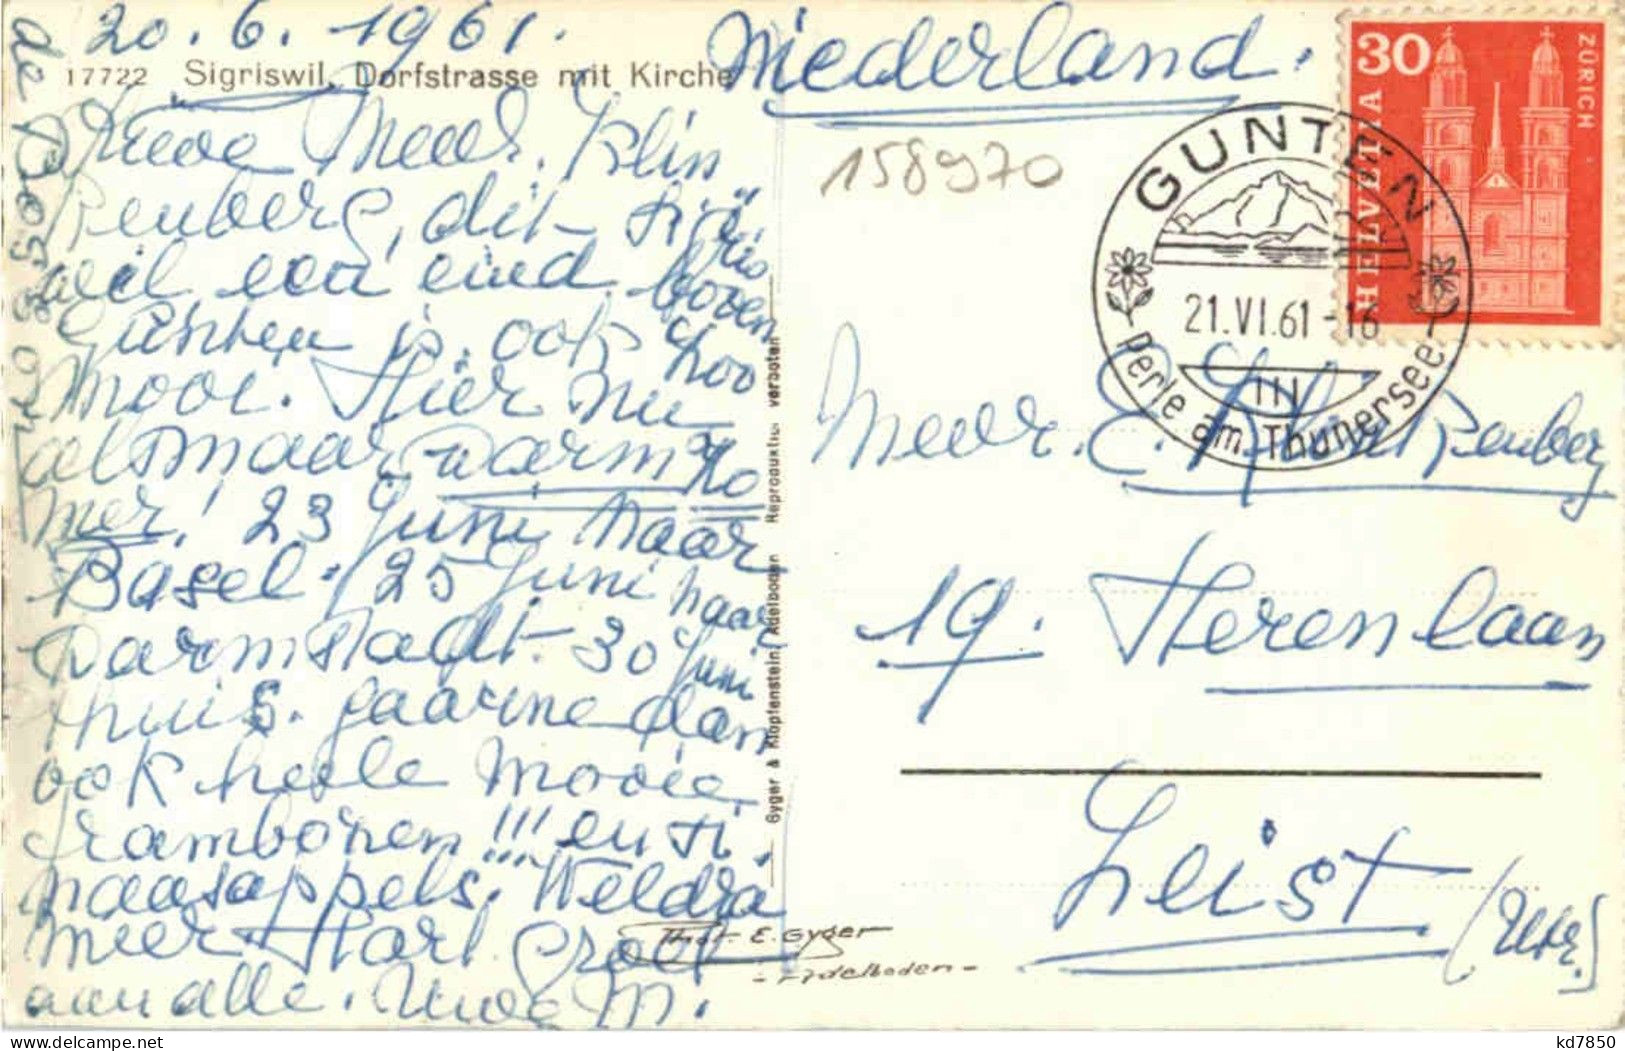 20.6.1961.
17722 Sigriswil, Dorfstrasse mit Kirche
Meer. Klin
Renberg, dit
wel een eind boven
Gunten is ook zoo
mooi. Hier nu
alsmaar warm zo
mer! 23 Juni naar
Basel - 25 Juni naar
Darmstadt - 30 Juni
thuis. gaarne dan
ook heele mooie
frambozen!!! en
Weldra
meer. Hart. Groet
aan alle. M.
Gyger & Klopfenstein, Adelboden Reproduktion verboten
Phot. E. Gyger
- Adelboden -
Niederland.
158970
30
HELVETIA
ZÜRICH
GUNTEN
21.VI.61-16
III
Perle am Thunersee
Meer. E. Renberg
19. Herenlaan
Zeist
(Utr.)